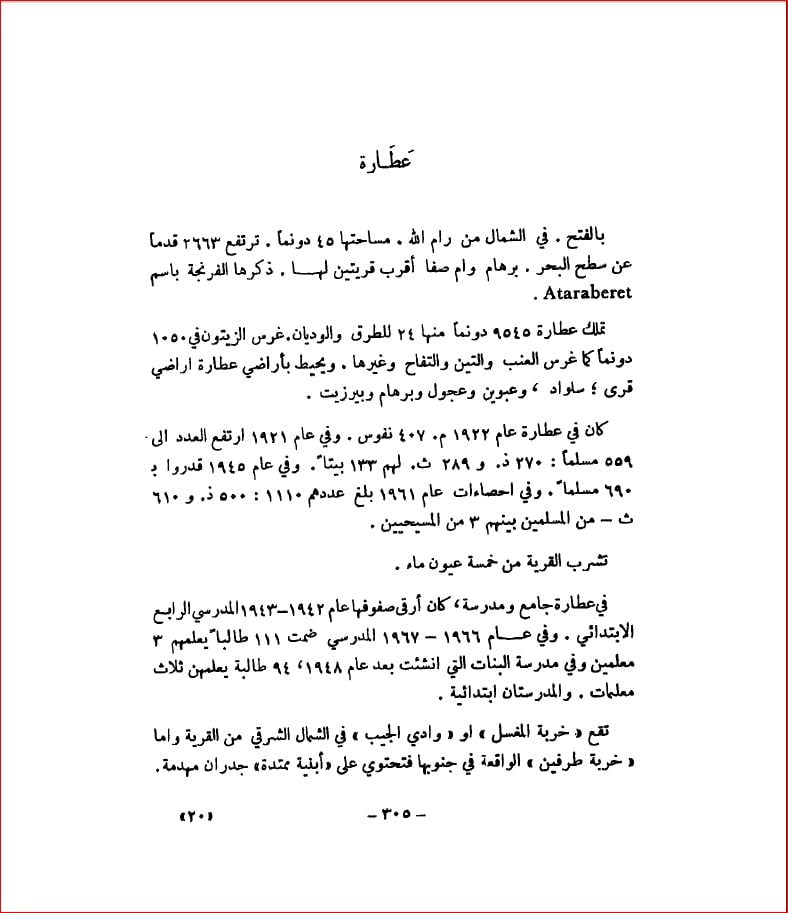 عَطَارة
بالفتح . في الشمال من رام الله . مساحتها ٤٥ دونماً . ترتفع ٢٦٦٣ قدماً
عن سطح البحر . برهام وام صفا أقرب قريتين لهـــا . ذكرها الفرنجة باسم
Ataraberet .
تملك عطارة ٩٥٤٥ دونماً منها ٢٤ للطرق والوديان.غرس الزيتون في ١٠٥٠
دونماً كما غرس العنب والتين والتفاح وغيرها . ويحيط بأراضي عطارة اراضي
قرى ؛ سلواد ، وعبوين وعجول وبرهام وبيرزيت .
كان في عطارة عام ١٩٢٢ م. ٤٠٧ نفوس . وفي عام ١٩٢١ ارتفع العدد الى
٥٥٩ مسلماً : ٢٧٠ ذ. و ٢٨٩ ث. لهم ١٣٣ بيتاً. وفي عام ١٩٤٥ قدروا بـ
٦٩٠ مسلماً. وفي احصاءات عام ١٩٦١ بلغ عددهم ١١١٠ : ٥٠٠ ذ. و ٦١٠
ث – من المسلمين بينهم ٣ من المسيحيين .
تشرب القرية من خمسة عيون ماء .
في عطارة جامع ومدرسة، كان أرقى صفوفها عام ١٩٤٢–١٩٤٣ المدرسي الرابع
الابتدائي . وفي عـــام ١٩٦٦ – ١٩٦٧ المدرسي ضمت ١١١ طالباً يعلمهم ٣
معلمين وفي مدرسة البنات التي انشئت بعد عام ١٩٤٨، ٩٤ طالبة يعلمهن ثلاث
معلمات . والمدرستان ابتدائية .
تقع « خربة المغسل » او « وادي الجيب » في الشمال الشرقي من القرية واما
« خربة طرفين » الواقعة في جنوبها فتحتوي على «أبنية ممتدة» جدران مهدمة.
– ٣٠٥ –
«٢٠»